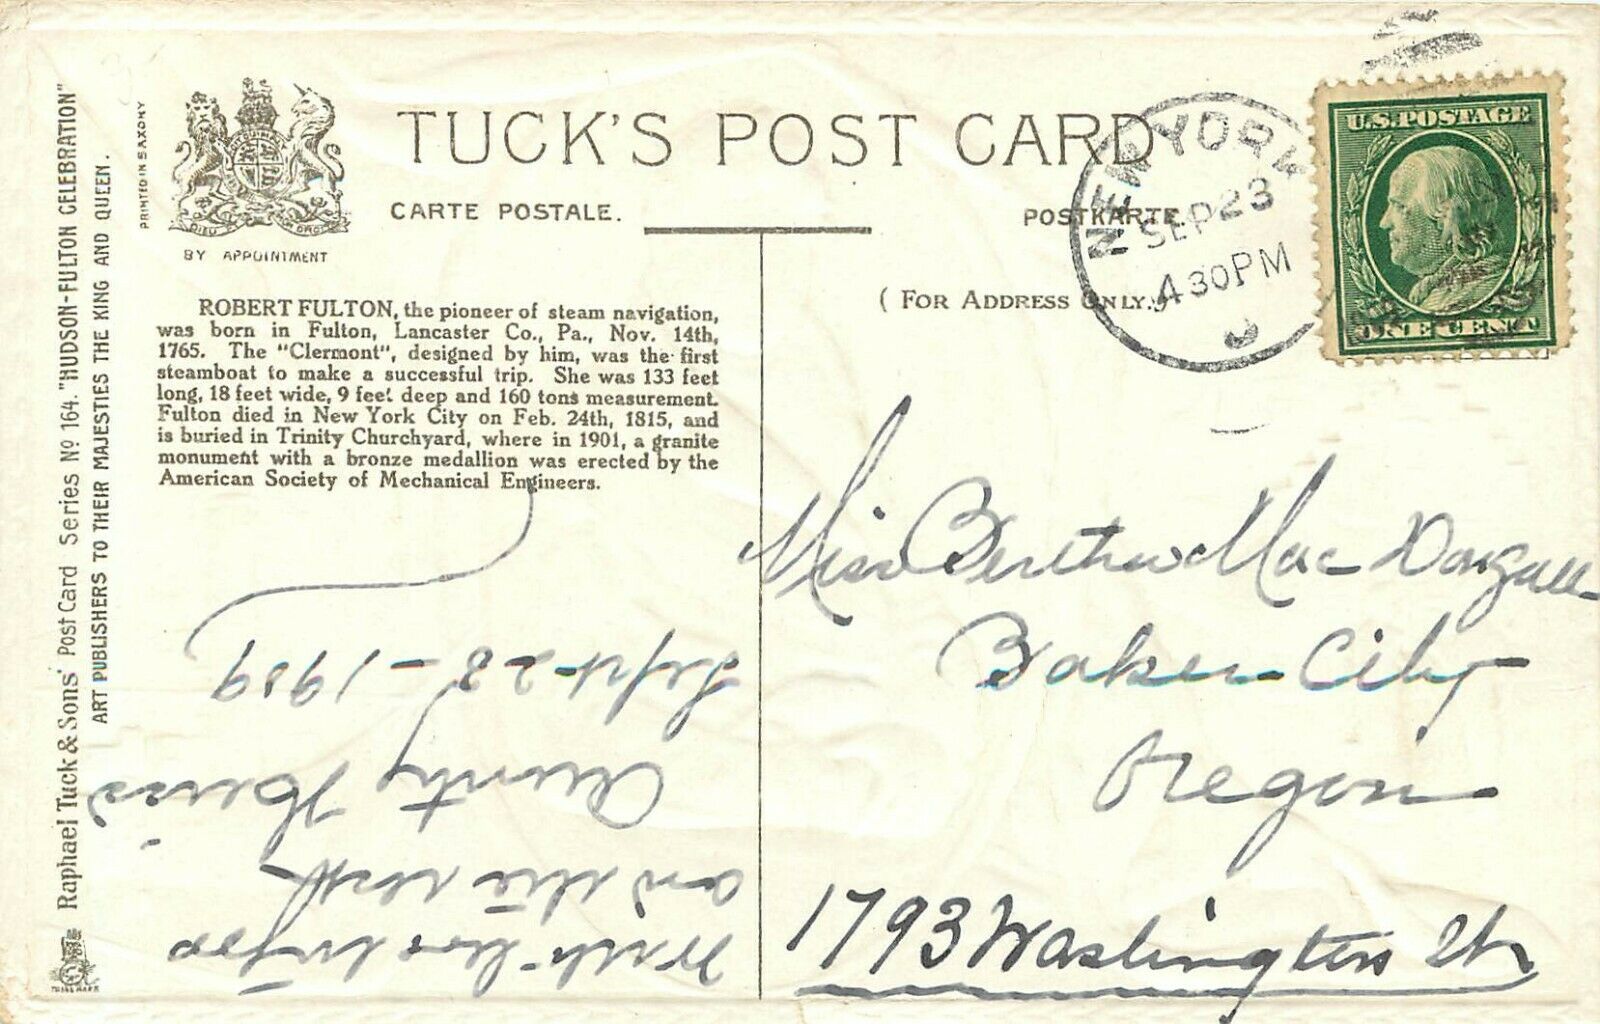 TUCK'S POST CARD
CARTE POSTALE.
POSTKARTE.
(FOR ADDRESS ONLY.)
PRINTED IN SAXONY
DIEU ET MON DROIT
BY APPOINTMENT
ROBERT FULTON, the pioneer of steam navigation,
was born in Fulton, Lancaster Co., Pa., Nov. 14th,
1765. The "Clermont", designed by him, was the first
steamboat to make a successful trip. She was 133 feet
long, 18 feet wide, 9 feet deep and 160 tons measurement.
Fulton died in New York City on Feb. 24th, 1815, and
is buried in Trinity Churchyard, where in 1901, a granite
monument with a bronze medallion was erected by the
American Society of Mechanical Engineers.
Raphael Tuck & Sons' Post Card Series No 164. "HUDSON-FULTON CELEBRATION"
ART PUBLISHERS TO THEIR MAJESTIES THE KING AND QUEEN.
TRADE MARK
NEW YORK
SEP 23
4 30 PM
U.S. POSTAGE
ONE CENT
With love
and
Aunty
Sept-23-1909
Miss Bertha Mac Dougall
Baker City
Oregon
1793 Washington St